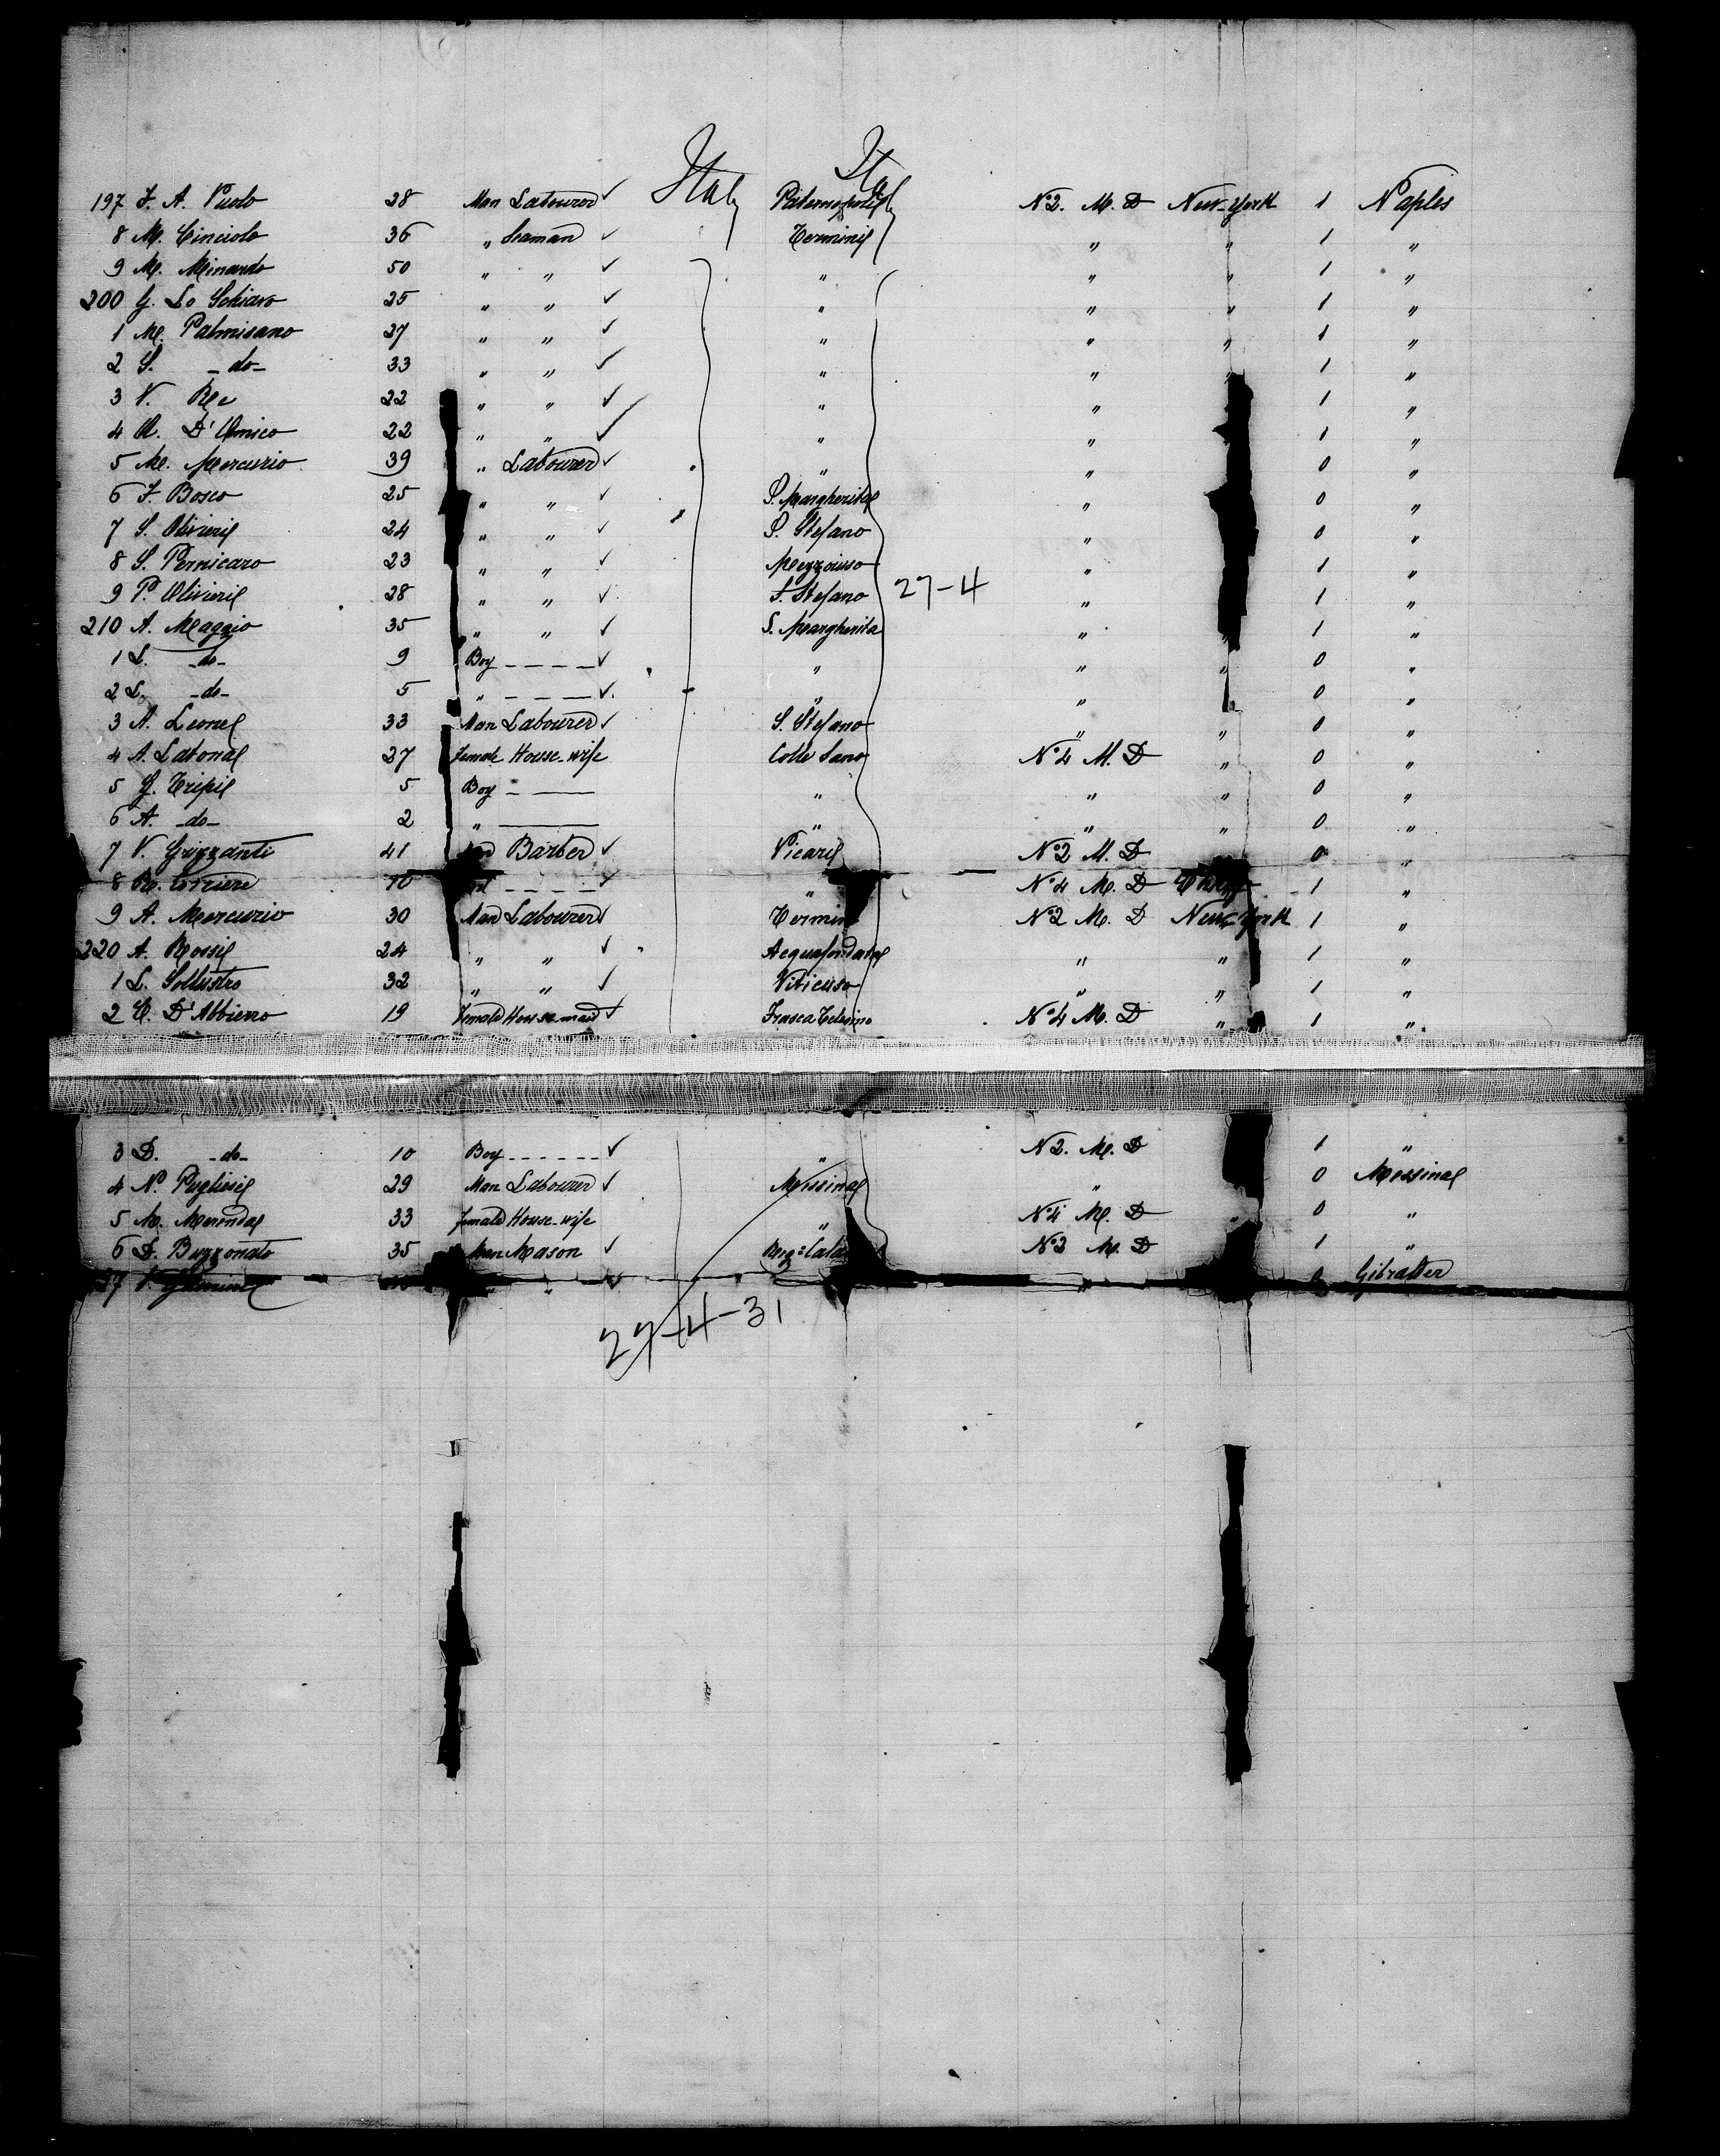 Italy Italy
197 F. A. Paolo 28 Man Labourer ✓ Paternopoli N°2. M. D New-York 1 Naples
8 M. Cinciolo 36 " Seaman ✓ Termini " " 1 "
9 M. Minardo 50 " " ✓ " " " 1 "
200 G. Lo Schiavo 25 " " ✓ " " " 1 "
1 M. Palmisano 27 " " ✓ " " " 1 "
2 S. -do- 33 " " ✓ " " " 1 "
3 V. Re 22 " " ✓ " " 1 "
4 A. D'Amico 22 " " ✓ " " 1 "
5 M. Mercurio 39 " Labourer ✓ " " 0 "
6 F. Bosco 25 " " ✓ S. Margherita " 0 "
7 S. Olivieri 24 " " ✓ S. Stefano " 0 "
8 S. Pernicaro 23 " " ✓ Mezzoiuso " 1 "
9 P. Olivieri 28 " " ✓ S. Stefano 27-4 " 1 "
210 A. Maggio 35 " " ✓ S. Margherita " " 1 "
1 L. -do- 9 Boy - - - - ✓ " " " 0 "
2 L. -do- 5 " - - - ✓ " " 0 "
3 A. Leone 33 Man Labourer ✓ S. Stefano " " 0 "
4 A. Labona 27 female House-wife Colle Sano N°4 M. D " 0 "
5 G. Tripi 5 Boy - — " " " 0 "
6 A. -do- 2 " — " " " 0 "
7 V. Grizzanti 41 Barber ✓ Vicari N°2 M. D 0 "
8 10 - - - - ✓ " N°4 M. D 1 "
9 A. Mercurio 30 Man Labourer ✓ Termini N°2 M. D New-York 1 "
220 A. Rossi 24 " " ✓ Acquafondata " " 1 "
1 L. Sollustro 32 " " ✓ Viticuso " " 1 "
2 C. D'Abbierro 19 Female House-maid ✓ Frasca Telesino N°4 M. D " 1 "
3 D. -do- 10 Boy - - - - - - ✓ " N°2. M. D 1 "
4 N. Pugliesi 29 Man Labourer ✓ Messina " 0 Messina
5 M. Merenda 33 female House-wife " N°4 M. D " 0 "
6 D. Buzzonato 35 Man Mason ✓ N°2 M. D 1 "
V. " " ✓ " Gibralter
27-4-31